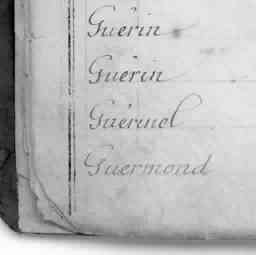 Guérin
Guérin
Guérinol
Guermond